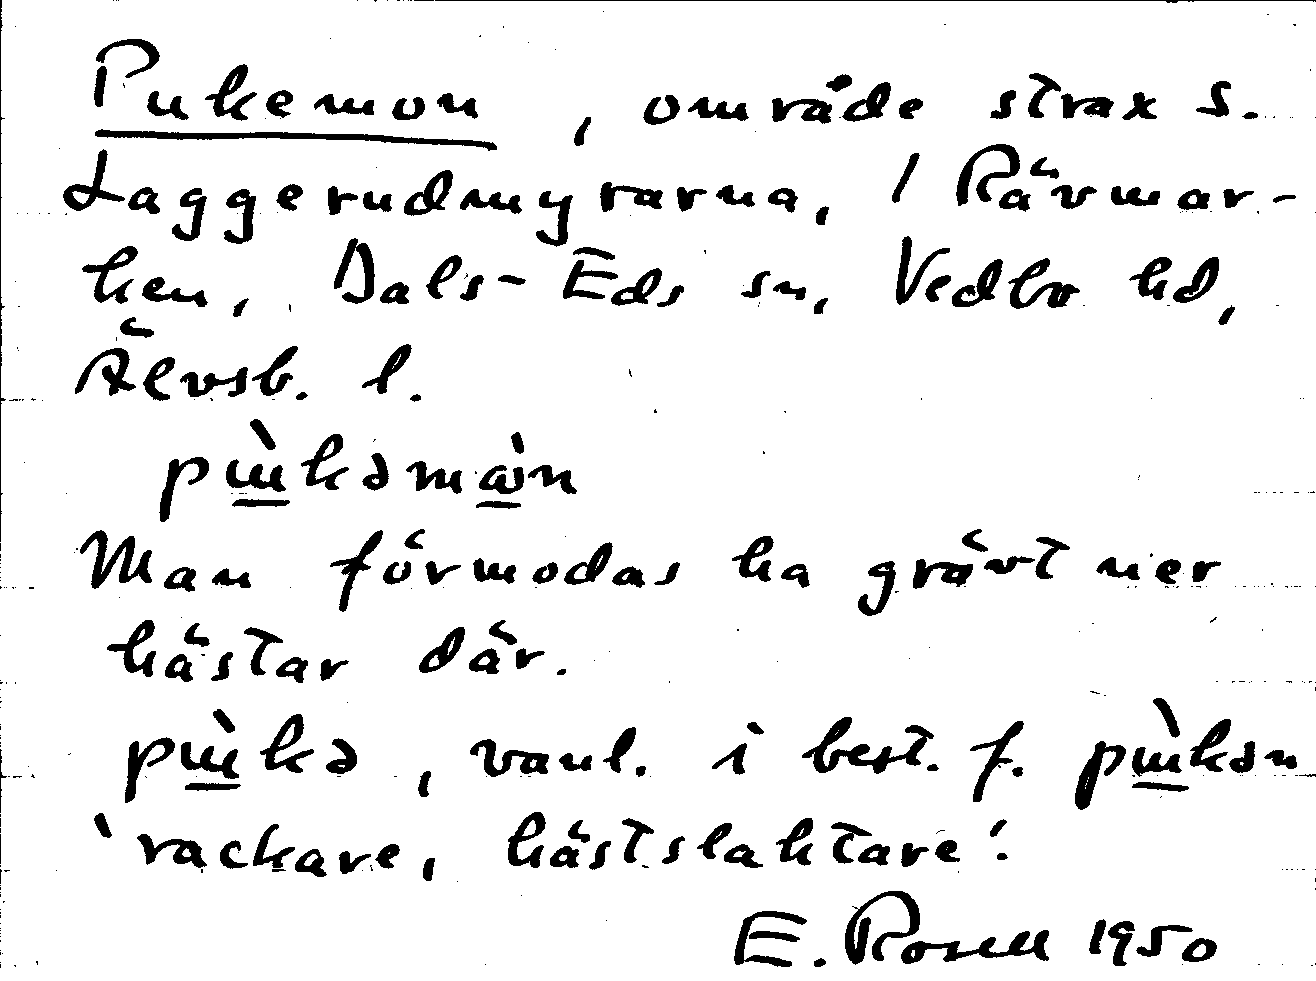 Pukemon, område strax S.
Laggerudmyrarna, / Rävmar-
ken, Dals-Eds sn, Vedbo hd,
Älvsb. l.
pɯ̀kəmòn
Man förmodas ha grävt ner
hästar där.
pɯ̀kə, vanl. i best. f. pɯ̀kən
'rackare, hästslaktare'.
E. Rosell 1950